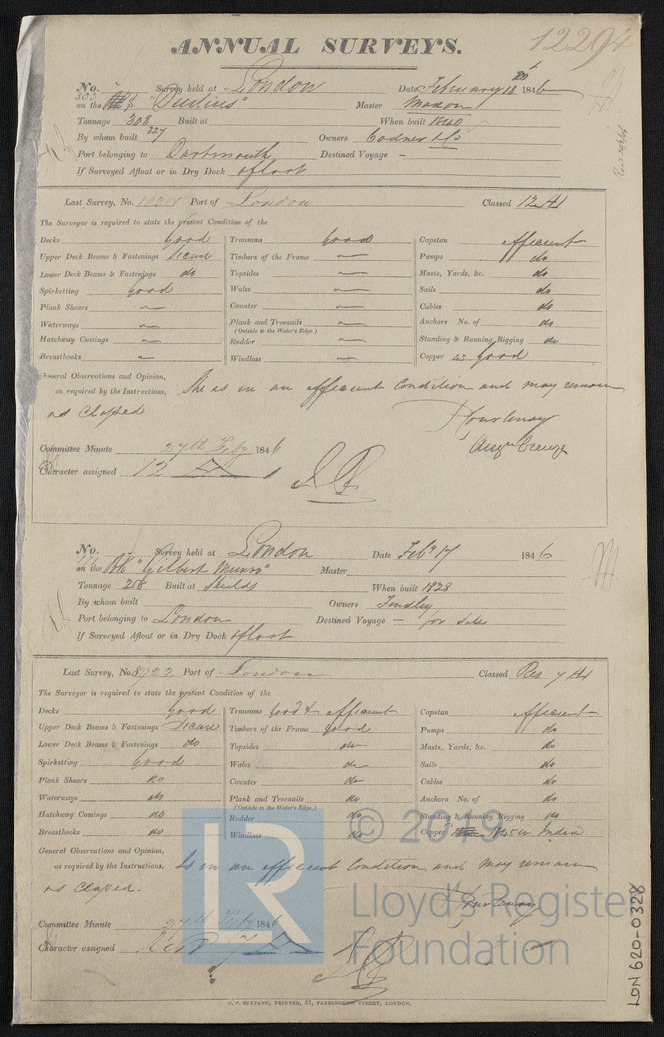 12294
ANNUAL SURVEYS.
No. Survey held at London Date February 1846
303
on the "Duilius" Master Moxon
Tonnage 308 Built at When built 1840
227
By whom built Owners Codner & Co
Port belonging to Dartmouth Destined Voyage –
If Surveyed Afloat or in Dry Dock afloat
Last Survey, No. Port of London Classed 12 A1
The Surveyor is required to state the present Condition of the
Decks Good Transoms Good Capstan efficient
Upper Deck Beams & Fastenings Secure Timbers of the Frame Pumps do
Lower Deck Beams & Fastenings do Topsides Masts, Yards, &c. do
Spirketting Good Wales Sails do
Plank Shears Counter Cables do
Waterways Plank and Treenails Anchors No. of do
(Outside to the Water's Edge.)
Hatchway Comings Rudder Standing & Running Rigging do
Breasthooks Windlass Copper 45 Good
General Observations and Opinion,
as required by the Instructions, She is in an efficient Condition and may remain
as Classed
Courtenay
Augn Creuze
Committee Minute 27th Feby 1846
Character assigned 12 A 1
No. Survey held at London Date Feby 17 1846
on the "Gilbert Munro" Master
Tonnage 258 Built at Shields When built 1828
By whom built Owners Tindley
Port belonging to London Destined Voyage – for Sale
If Surveyed Afloat or in Dry Dock afloat
Last Survey, No. 8922 Port of London Classed Res 7 A1
The Surveyor is required to state the present Condition of the
Decks Good Transoms Good & efficient Capstan efficient
Upper Deck Beams & Fastenings Secure Timbers of the Frame Good Pumps do
Lower Deck Beams & Fastenings do Topsides do Masts, Yards, &c. do
Spirketting Good Wales do Sails do
Plank Shears do Counter do Cables do
Waterways do Plank and Treenails do Anchors No. of do
(Outside to the Water's Edge.)
Hatchway Comings do Rudder do Standing & Running Rigging do
Breasthooks do Windlass do Copper 1845 in India
General Observations and Opinion,
as required by the Instructions, Is in an efficient Condition and may remain
as Classed.
Courtenay
Committee Minute 27th Feby 1846
Character assigned
C. F. SEYFANG, PRINTER, 57, FARRINGDON STREET, LONDON.
LR © 2019
Lloyd's Register
Foundation
LON 620-0328